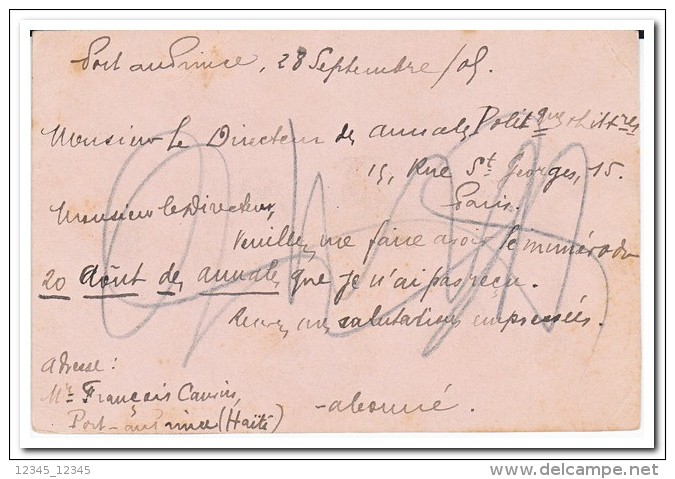 Port au Prince, 28 Septembre/05.
Monsieur le Directeur des Annales Politques & Littres
15, Rue St Georges, 15.
Paris.
Monsieur le Directeur,
Veuillez me faire avoir le numéro du
20 Août des Annales que je n'ai pas reçu.
Recevez mes salutations empressées.
Adresse :
Mr François Cauvin,
Port-au Prince (Haïti)
- abonné.
12345_12345
delcampe.net